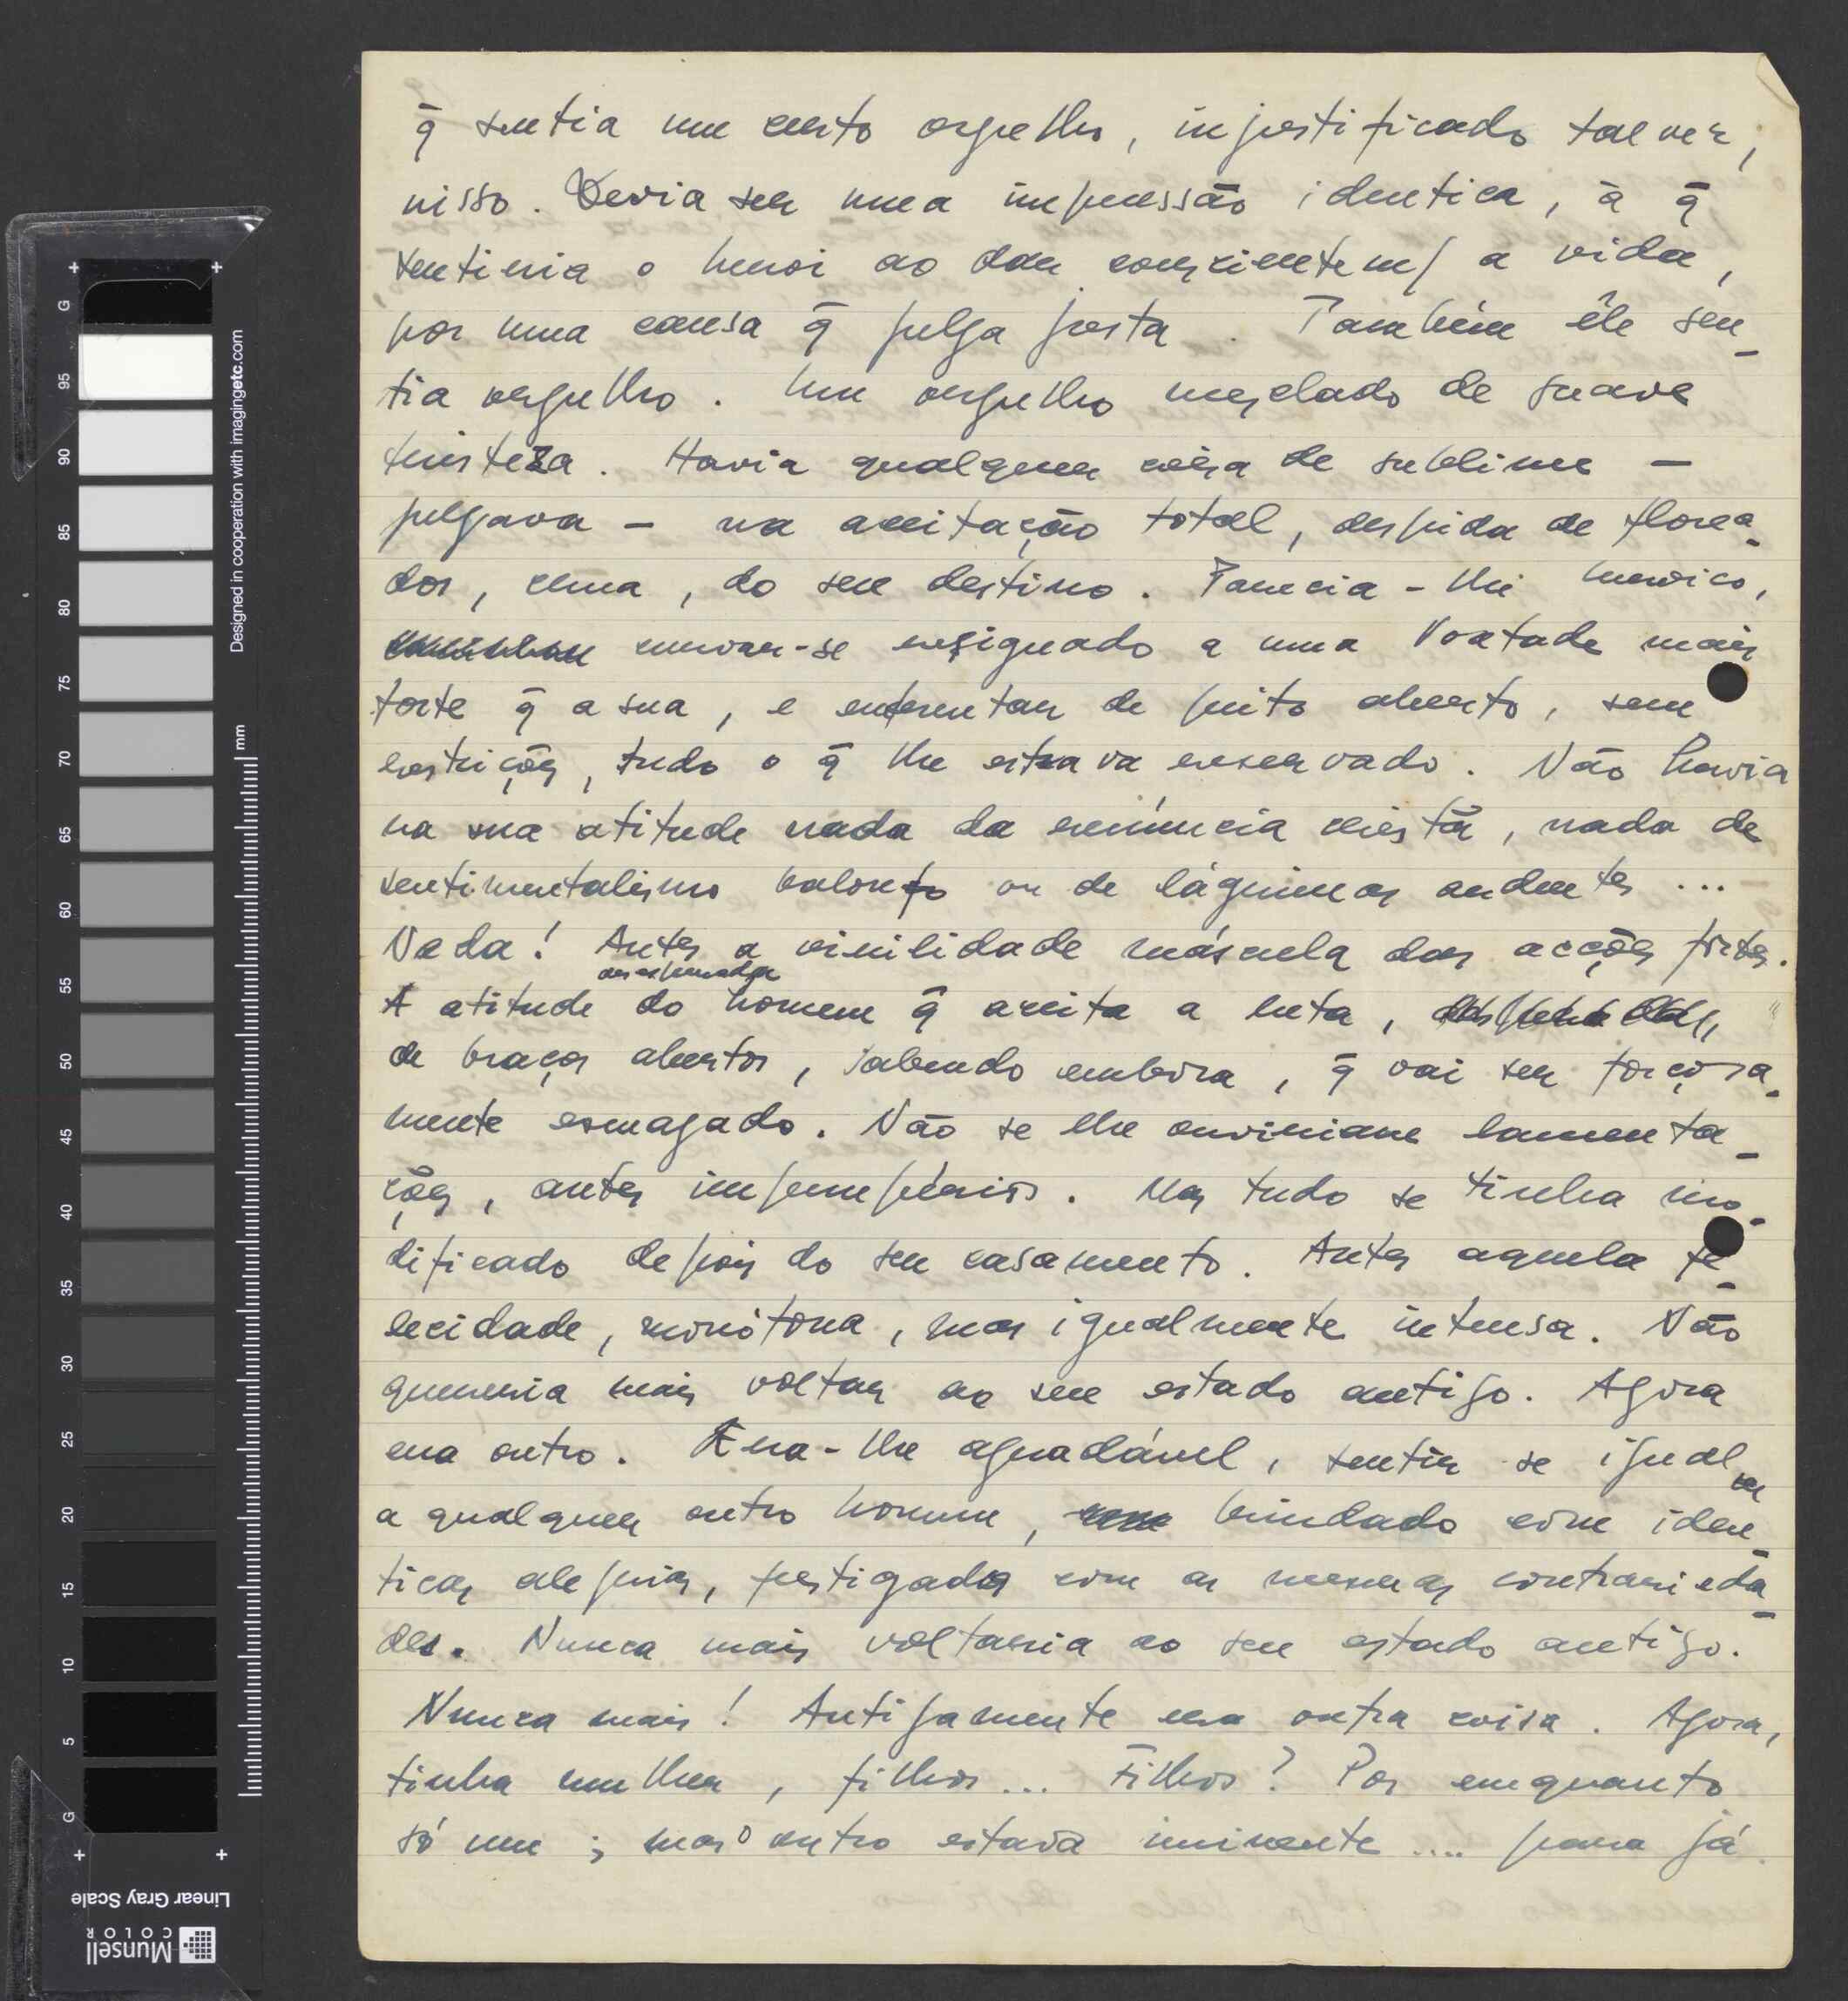 q̃ sentia um certo orgulho, injustificado talvez,
nisso. Devia ser uma impressão identica, à q̃
sentiria o heroi ao dar conscientem/ a vida,
por uma causa q̃ julga justa. Também êle sen_
tia orgulho. Um orgulho mesclado de suave
tristeza. Havia qualquer coisa de sublime —
julgava — na aceitação total, despida de florea_
dos, crua, do seu destino. Parecia-lhe heroico,
curvar-se resignado a uma Vontade mais
forte q̃ a sua, e enfrentar de peito aberto, sem
restrições, tudo o q̃ lhe estava reservado. Não havia
na sua atitude nada da renúncia cristã, nada de
sentimentalismo balofo ou de lágrimas ardentes ...
Nada! Antes a virilidade máscula das acções fortes.
A atitude do homem q̃ aceita a luta,
de braços abertos, sabendo embora, q̃ vai ser forçosa_
mente esmagado. Não se lhe ouviriam lamenta_
ções, antes impropérios. Mas tudo se tinha mo_
dificado depois do seu casamento. Antes aquela fe_
licidade, monótona, mas igualmente intensa. Não
quereria mais voltar ao seu estado antigo. Agora
era outro. Era-lhe agradável, sentir se igual
a qualquer outro homem, ser brindado com iden_
ticas alegrias, fustigado com as mesmas contrarieda_
des. Nunca mais voltaria ao seu estado antigo.
Nunca mais! Antigamente era outra coisa. Agora,
tinha mulher, filhos... Filhos? Por emquanto
só um; mas o outro estava iminente .... para já
Designed in cooperation with imagingetc.com
mm
G 95 90 85 80 75 70 65 60 55 50 45 40 35 30 25 20 15 10 5 G
Linear Gray Scale
Munsell
COLOR